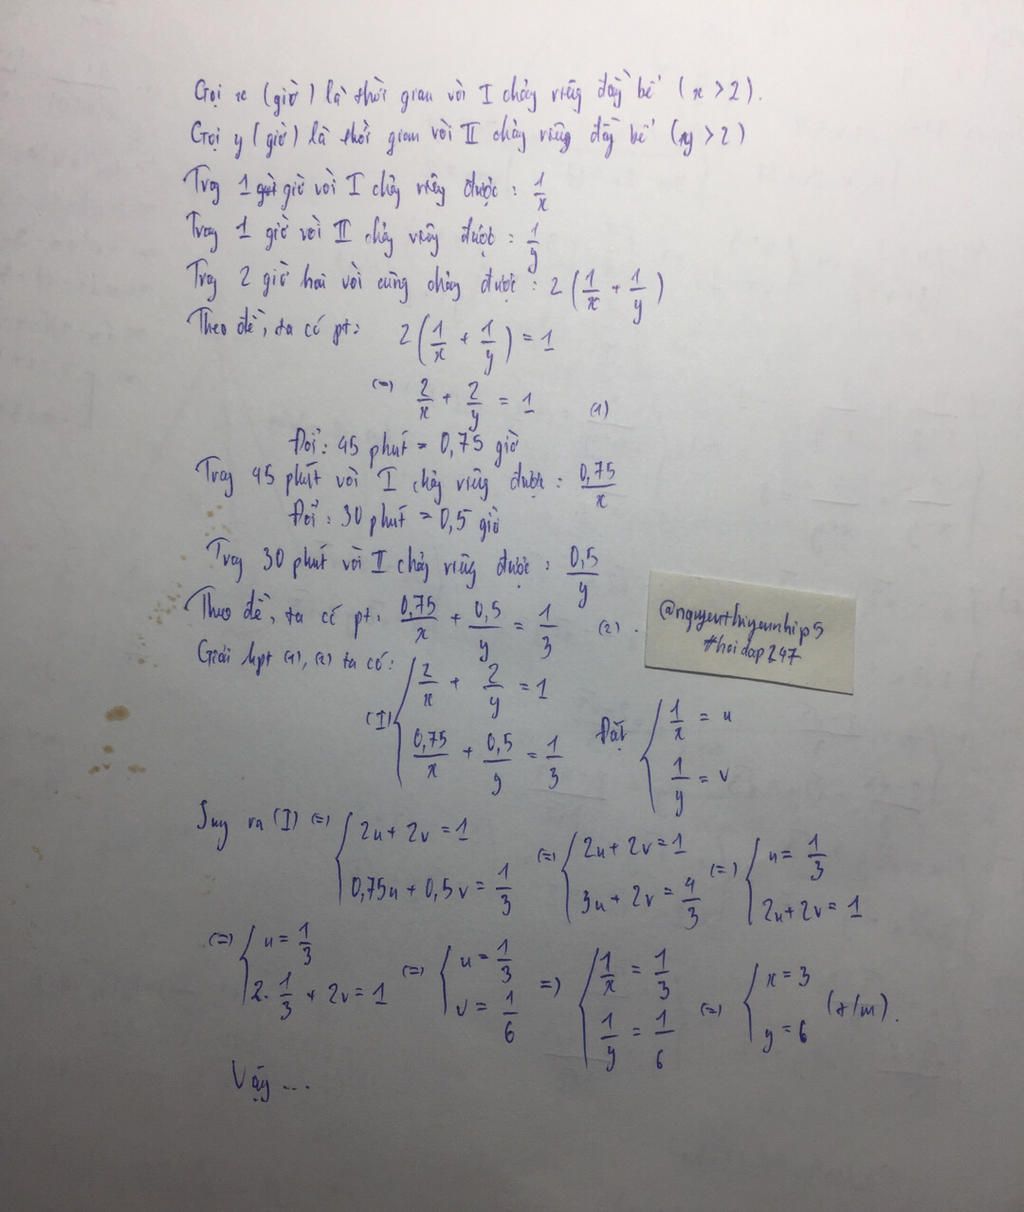 Gọi x (giờ) là thời gian vòi I chảy riêng đầy bể (x > 2).
Gọi y (giờ) là thời gian vòi II chảy riêng đầy bể (y > 2)
Trong 1 giờ vòi I chảy riêng được : 1/x
Trong 1 giờ vòi II chảy riêng được : 1/y
Trong 2 giờ hai vòi cùng chảy được : 2(1/x + 1/y)
Theo đề, ta có pt: 2(1/x + 1/y) = 1
(=) 2/x + 2/y = 1 (1)
Đổi: 45 phút = 0,75 giờ
Trong 45 phút vòi I chảy riêng được : 0,75/x
Đổi: 30 phút = 0,5 giờ
Trong 30 phút vòi II chảy riêng được : 0,5/y
Theo đề, ta có pt: 0,75/x + 0,5/y = 1/3 (2).
@nguyenthiyennhip5
#hoidap247
Giải hpt (1), (2) ta có: (I) { 2/x + 2/y = 1
0,75/x + 0,5/y = 1/3 Đặt { 1/x = u
1/y = v
Suy ra (I) (=) { 2u + 2v = 1 (=) { 2u + 2v = 1 (=) { u = 1/3
0,75u + 0,5v = 1/3 3u + 2v = 4/3 2u + 2v = 1
(=) { u = 1/3 (=) { u = 1/3 =) { 1/x = 1/3 (=) { x = 3
2. 1/3 + 2v = 1 v = 1/6 1/y = 1/6 y = 6 (t/m).
Vậy ...